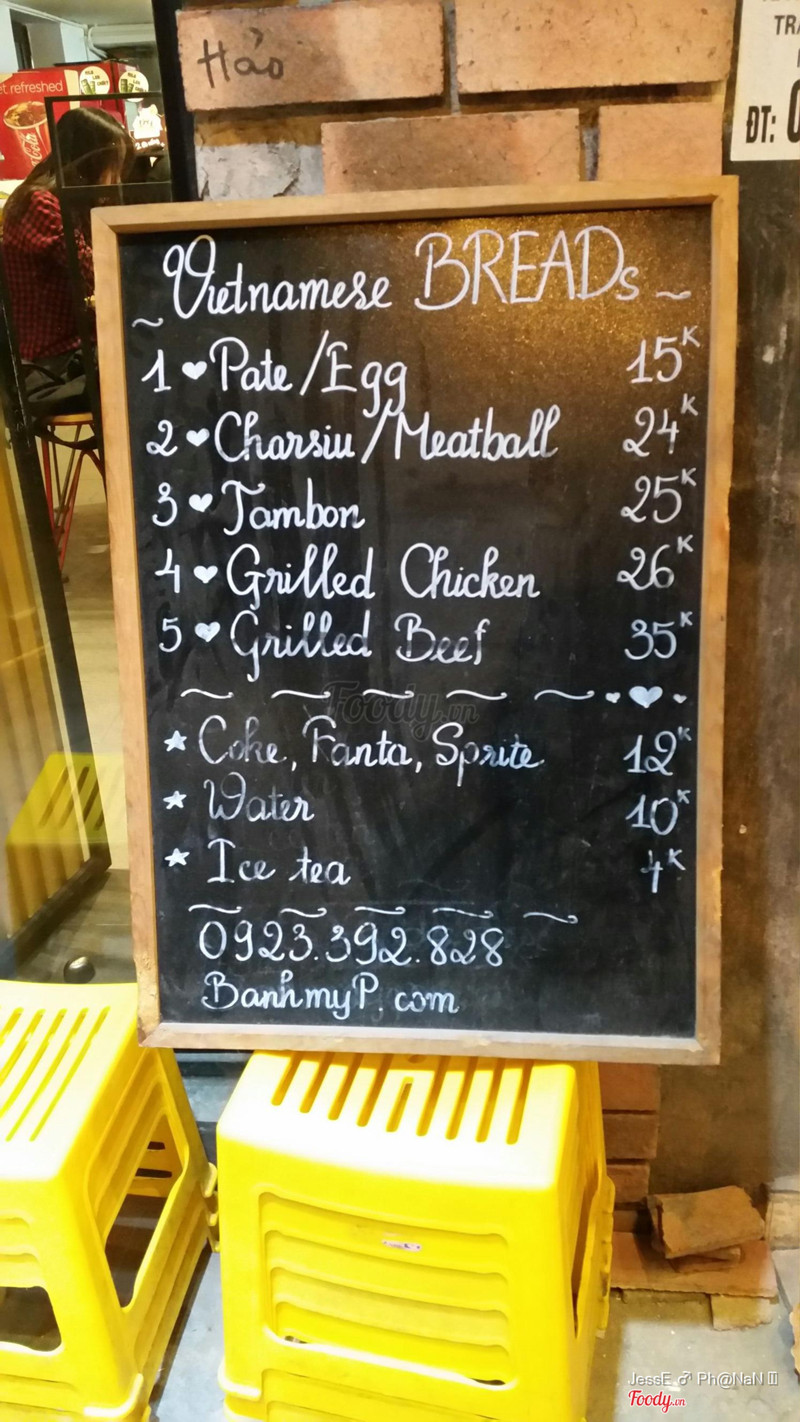 Hảo
et refreshed
Coca-Cola
TRA
ĐT: 0
Vietnamese BREADs
1 ♥ Pate/Egg 15K
2 ♥ Charsiu/Meatball 24K
3 ♥ Jambon 25K
4 ♥ Grilled Chicken 26K
5 ♥ Grilled Beef 35K
Foody.vn
★ Coke, Fanta, Sprite 12K
★ Water 10K
★ Ice tea 4K
0923.392.828
BanhmyP.com
JessE ♂ Ph@NaN III
Foody.vn